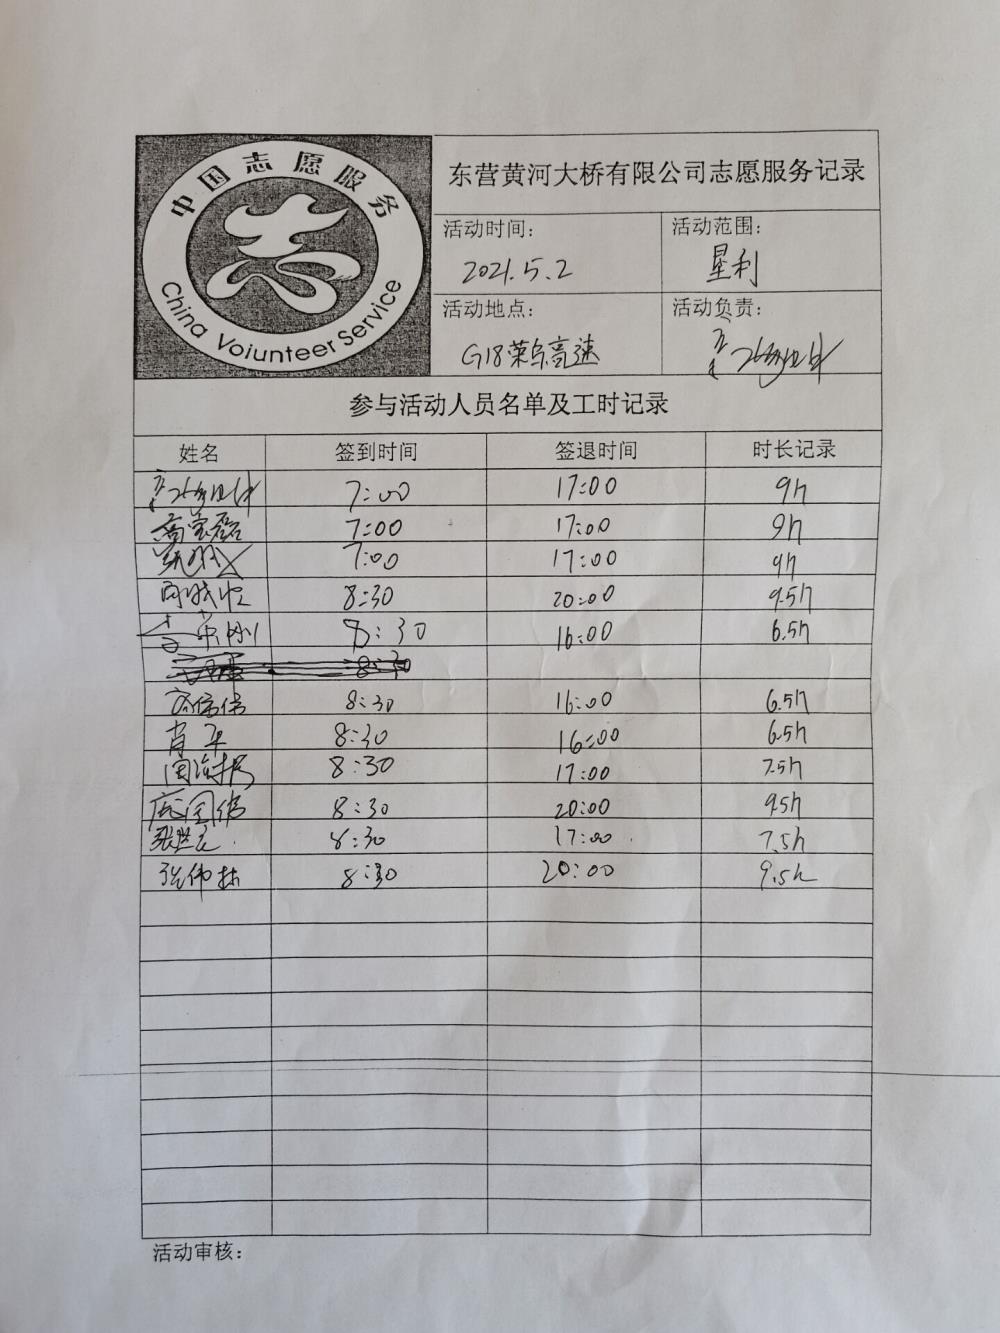 中国志愿服务
China Voiunteer Service
东营黄河大桥有限公司志愿服务记录
活动时间:
活动范围:
2021.5.2
垦利
活动地点:
活动负责:
G18荣乌高速
参与活动人员名单及工时记录
姓名 签到时间 签退时间 时长记录
7:00 17:00 9h
高宝磊 7:00 17:00 9h
7:00 17:00 9h
8:30 20:00 9.5h
8:30 16:00 6.5h
8:30
8:30 16:00 6.5h
肖军 8:30 16:00 6.5h
8:30 17:00 7.5h
庞国伟 8:30 20:00 9.5h
8:30 17:00 7.5h
张伟林 8:30 20:00 9.5h
活动审核: